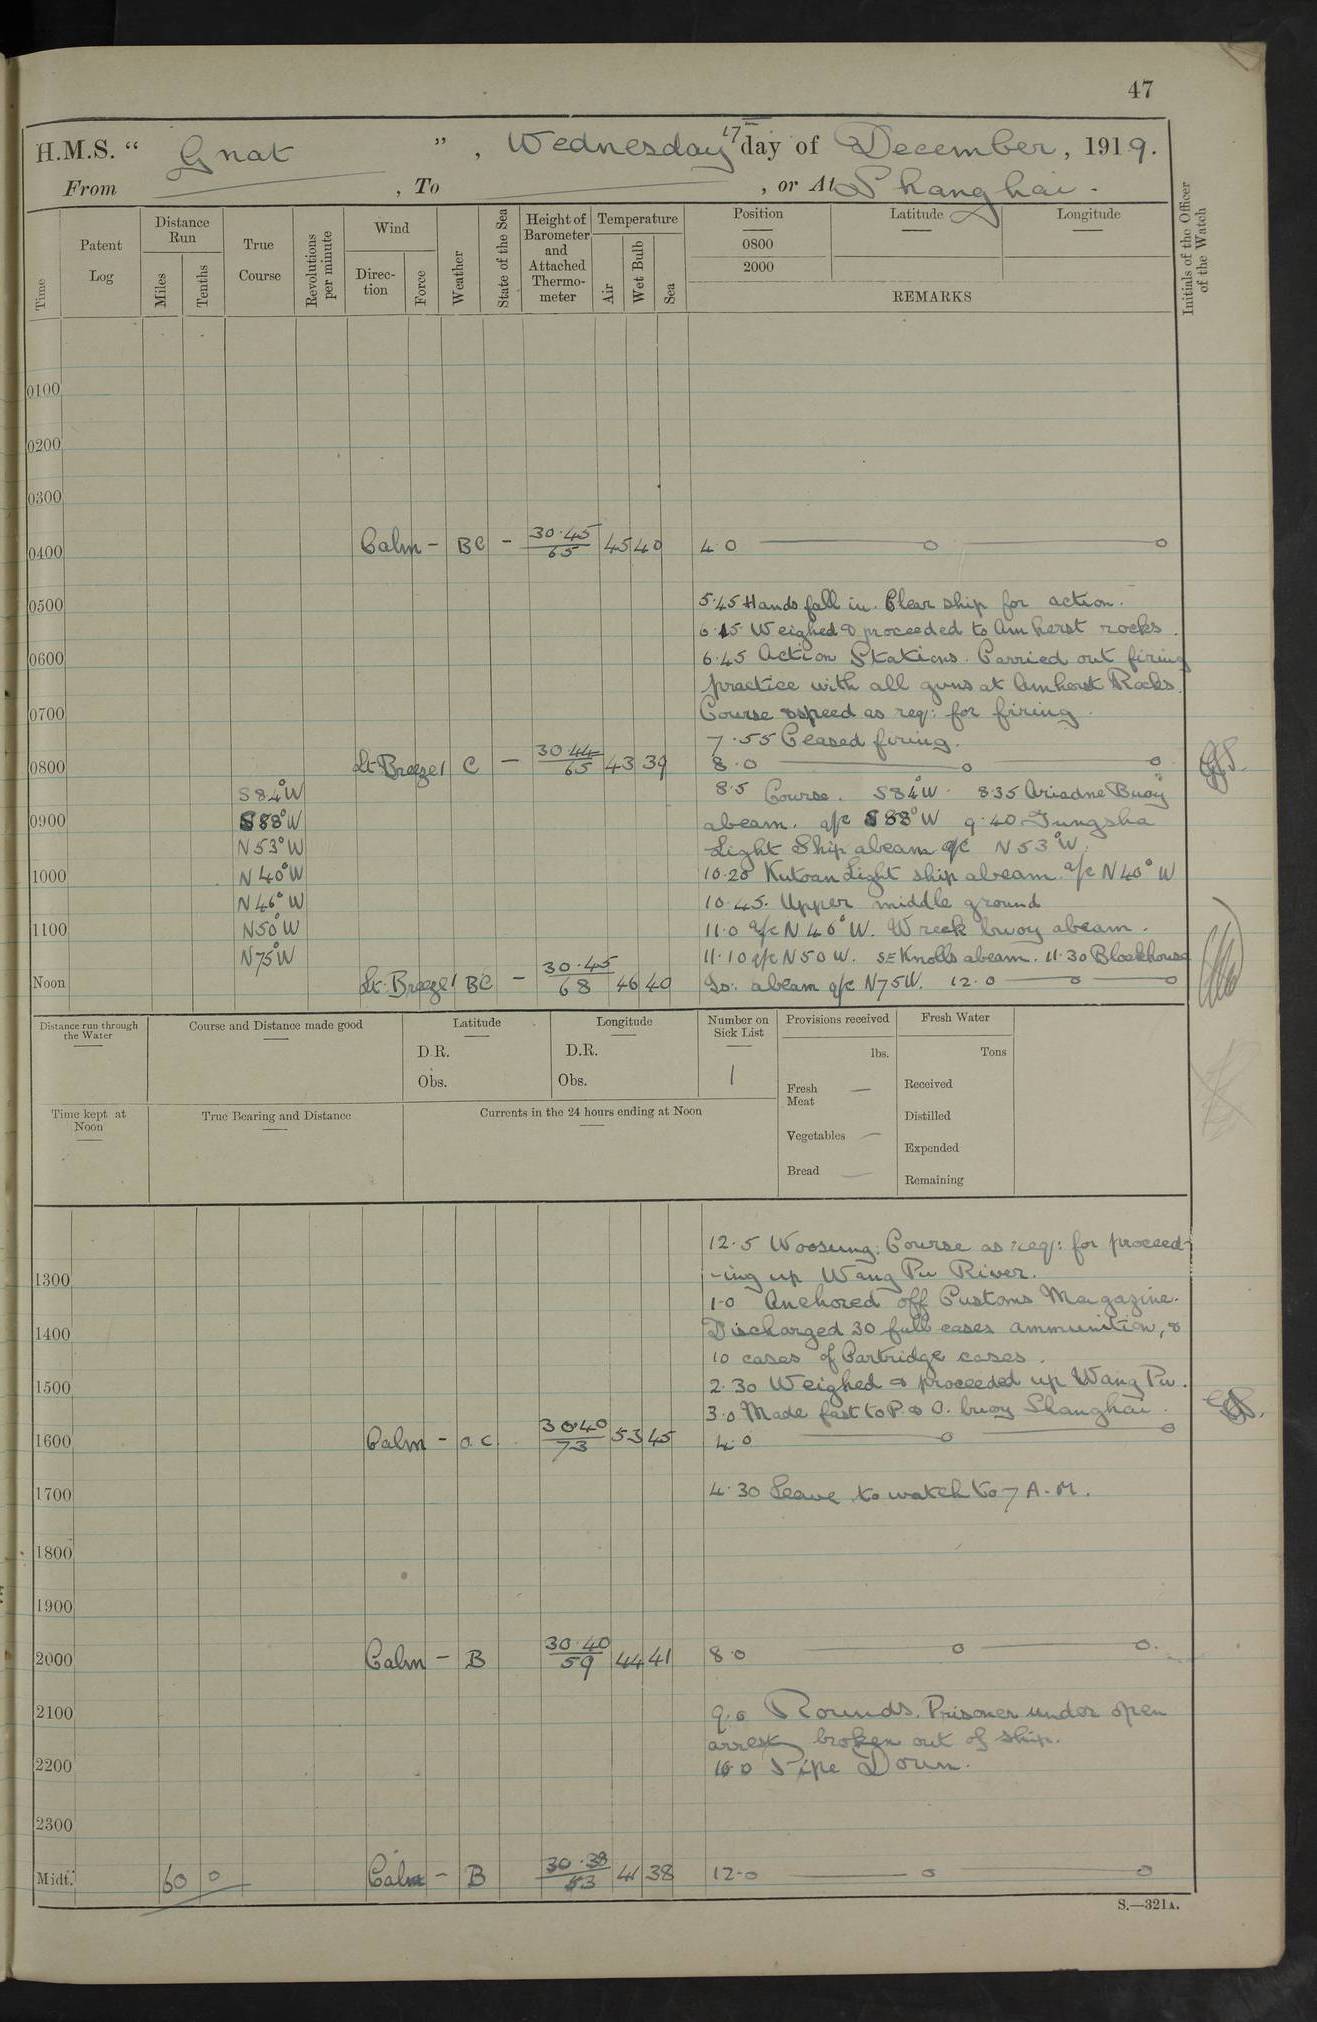 47
H.M.S. " Gnat ", Wednesday 17 day of December, 1919.
From , To , or At Shanghai.
Time
Patent Log
Distance Run
Miles
Tenths
True Course
Revolutions per minute
Wind
Direc-tion
Force
Weather
State of the Sea
Height of Barometer and Attached Thermo-meter
Temperature
Air
Wet Bulb
Sea
Position
Latitude
Longitude
0800
2000
REMARKS
Initials of the Officer of the Watch
0100
0200
0300
0400 Calm – BC – 30.45/65 45 40 4.0
0500 5.45 Hands fall in. Clear ship for action.
6.15 Weighed & proceeded to Amherst rocks.
0600 6.45 Action Stations. Carried out firing
practice with all guns at Amherst Rocks.
0700 Course & speed as req: for firing.
7.55 Ceased firing.
0800 Lt Breeze 1 C – 30.44/65 43 39 8.0
S84°W 8.5 Course. S84°W. 8.35 Ariadne Buoy
0900 S88°W abeam. a/c S88°W 9.40 Tungsha
N53°W Light Ship abeam a/c N53°W.
1000 N40°W 10.20 Kutoan Light ship abeam. a/c N40°W
N46°W 10.45. Upper middle ground
1100 N50°W 11.0 a/c N46°W. Wreck buoy abeam.
N75°W 11.10 a/c N50W. SE Knolls abeam. 11.30 Blockhouse
Noon Lt. Breeze 1 BC – 30.45/68 46 40 Is: abeam a/c N75W. 12.0
Distance run through the Water
Course and Distance made good
Latitude
D.R.
Obs.
Longitude
D.R.
Obs.
Number on Sick List
1
Provisions received
lbs.
Fresh Meat —
Vegetables —
Bread —
Fresh Water
Tons
Received
Distilled
Expended
Remaining
Time kept at Noon
True Bearing and Distance
Currents in the 24 hours ending at Noon
12.5 Woosung. Course as req: for proceed-
1300 -ing up Wang Pu River.
1.0 Anchored off Customs Magazine.
1400 Discharged 30 full cases ammunition, &
10 cases of Cartridge cases.
1500 2.30 Weighed & proceeded up Wang Pu.
3.0 Made fast to P & O. buoy Shanghai.
1600 Calm – o.c. 30.40/73 53 45 4.0
1700 4.30 Leave to watch to 7 A.M.
1800
1900
2000 Calm – B 30.40/59 44 41 8.0
2100 9.0 Rounds. Prisoner under open
arrest broken out of ship.
2200 10.0 Pipe Down.
2300
Midt. 60 0 Calm – B 30.38/53 41 38 12.0
S.—321A.